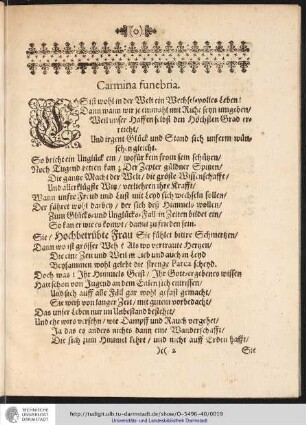 Carmina funebria.
ES ist wohl in der Welt ein Wechsel-volles Leben!
Dann wann wir je einmahl mit Ruhe seyn umgeben/
Weil unser Hoffen selbst den Höchsten Grad erreicht/
Und irgent Glück und Stand sich unserm wünschen gleicht.
So bricht ein Unglück ein/ wofür kein fromm sein schützen/
Noch Tugend retten kan; Der Zepter güldner Spitzen/
Die gantze Macht der Welt/ die gröste Wissenschafft/
Und allerklügste Witz/ verliehren ihre Krafft/
Wann unsre Freud und Lust mit Leyd sich wechseln sollen/
Der führet wohl darbey/ der sich deß Himmels wollen/
Zum Glücks- und Unglücks-Fall in Zeiten bildet ein/
So kan er wie es komt/ damit zu frieden seyn.
Sie/ Hochbetrübte Frau Sie fühlet bitter Schmertzen/
Dann wo ist grösser Weh? Als wo vertraute Hertzen/
Die eine Zeit und Weil in Lieb und auch in Leyd
Beysammen wohl gelebt die strenge Parca scheyd.
Doch was? Ihr Himmels Geist/ Ihr Gott-ergebenes wissen
Hat schon von Jugend an dem Eitlen sich entrissen/
Und sich auff alle Fäll gar wohl gefast gemacht/
Sie weiß von langer Zeit/ mit gutem vorbedacht/
Das unser Leben nur im Unbestand bestehet/
Und ehe wirs versehen/ wie Dampff und Rauch vergehet/
Ja das es anders nichts dann eine Wanderschafft/
Die sich zum Himmel kehrt/ und nicht auff Erden hafft/
)c( 2
Sie
TECHNISCHE UNIVERSITÄT DARMSTADT
http://tudigit.ulb.tu-darmstadt.de/show/O-5496-40/0009
Universitäts- und Landesbibliothek Darmstadt